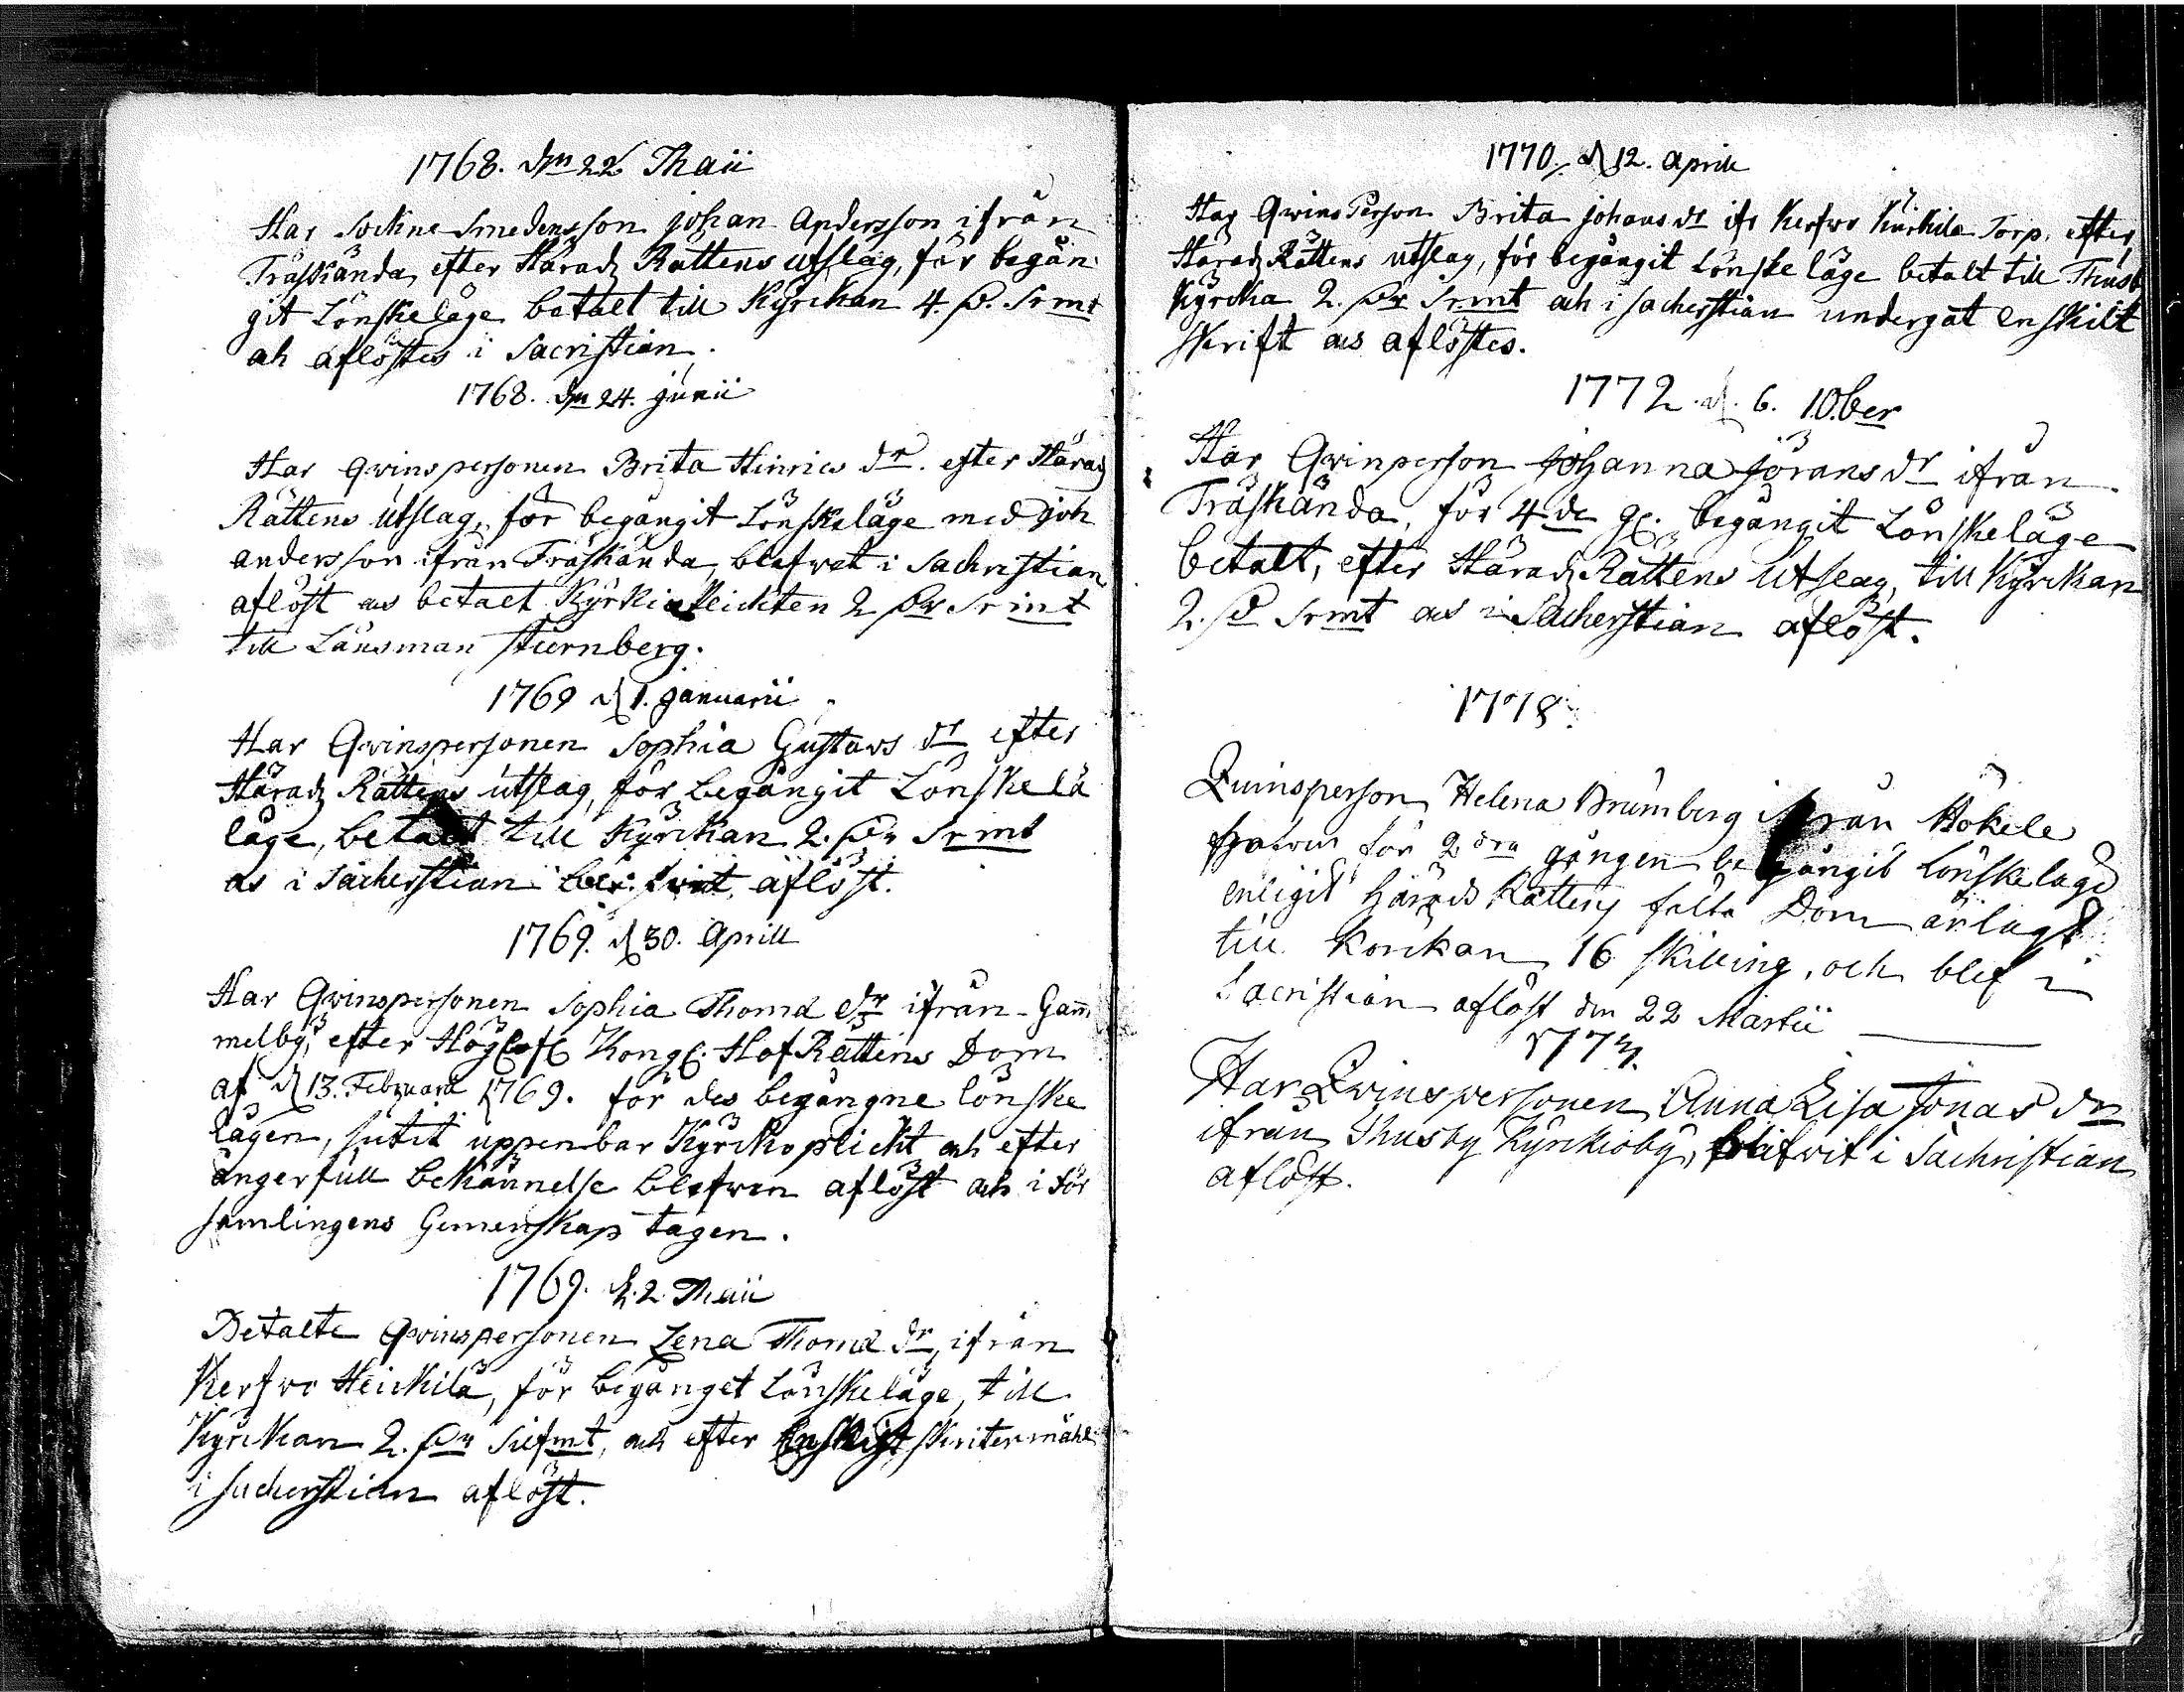 1768. dm 22 Maii
Har Sockne Smedens son Johan Andersson ifrån
Träskända, efter Härads Rättens utslag, för begån-
git Lönskeläge betalt till Kyrckan 4. p. Srmt
och aflöstes i Sacristian.
1768. dm 24. Junii
Har qvinspersonen Brita Hinrics dr. efter Härads
Rättens Utslag, för begångit Lönskeläge med Joh
andersson ifrån Träskända, blefwet i Sachristian
aflöst och betalt Kyrkio 2 pr Srmt
till Länsman Stiernberg.
1769 d 1. Januarii
Har Qvinspersonen Sophia Gustavs dr efter
Härads Rättens utslag, för begångit Lönskelä
läge, betalt till Kyrckan 2. pr Srmt
och i Sacherstian aflöst.
1769. d 30. Aprill
Har Qvinspersonen Sophia Thomæ dr ifrån Gam
melby, efter Högl. Kongl. HofRättens Dom
af d 13. Februarii 1769. för des begångne lönske
lägen, sutit uppenbar Kyrckoplicht och efter
ångerfull bekännelse blefwen aflöst och i för
samlingens Gemenskap tagen.
1769. d. 2. Maii
Betalte Qvinspersonen Lena Thomæ dr, ifrån
Kerfwo Heickilä, för begånget Lönskeläge, till
Kyrckan 2. pr Silfmt, och efter Enskilt skriftermåhl
i Sacherstian aflöst.
1770. d 12. Aprill
Har Qwins Person Brita Johans dr ifr Kerfwo Torp, efter
Härads Rättens utslag, för begångit Lönskeläge betalt till Thusb
Kyrcka 2. pr Srmt och i Sacherstian undergåt enskilt
skrift och aflöstes.
1772. d. 6. 10ber
Har Qvinperson Johanna Jörans dr ifrån
Träskända, för 4de gg. begångit Lönskeläge
betalt, efter Härads Rättens Utslag, till Kyrckan
2. p Srmt och i Sacherstian aflöst.
1778.
Quinsperson Helena Brumberg ifrån Hökele
för 2dra gången begångit Lönskeläge
enligit Härads Rättens fälta Dom ärlagt
till Körckan 16 skilling, och blef i
Sacristian aflöst den 22 Martii
Har Qvinspersonen Anna Lisa Jonas dr
ifrån Thusby Kyrckioby, blifwit i Sachristian
aflöst.